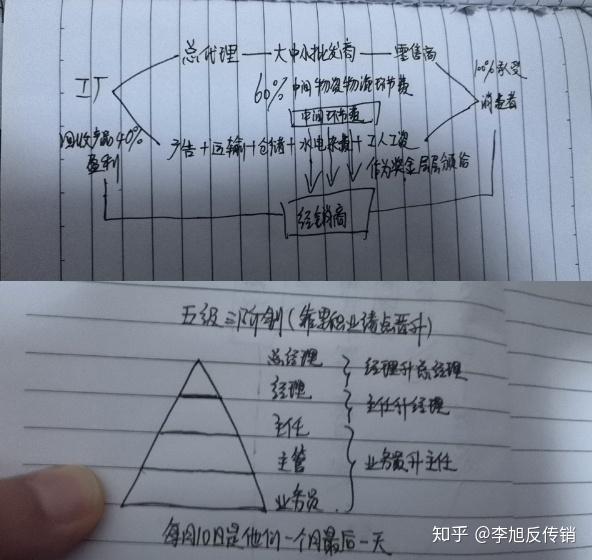 总代理 — 大中小批发商 — 零售商
工厂
60% 中间物资物流环节费
100%承受
消费者
中间环节费
回收产品40%
盈利
广告+运输+仓储+水电杂费+工人工资
作为奖金层层颁给
经销商
五级三阶制(靠累积业绩点晋升)
总经理
经理
主任
主管
业务员
经理升总经理
主任升经理
业务员升主任
每月10日是他们一个月最后一天
知乎 @李旭反传销